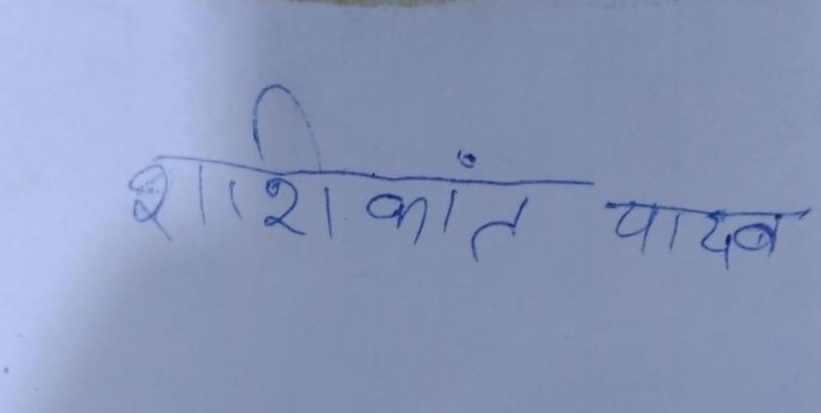 शशिकांत यादव